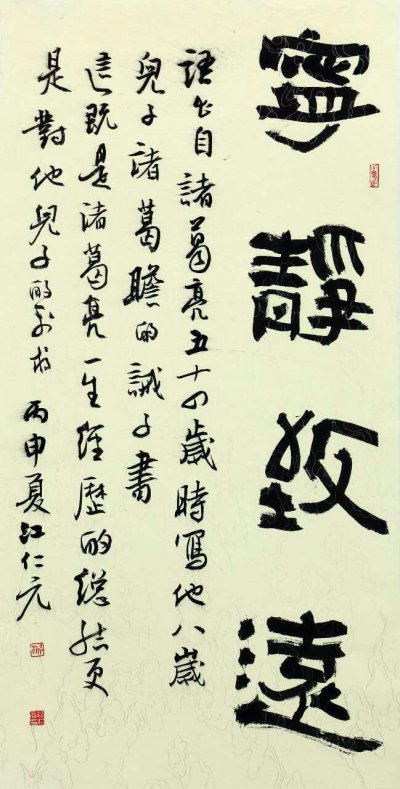 寧靜致遠
語出自諸葛亮五十四歲時寫他八歲
兒子諸葛瞻的誡子書
這既是諸葛亮一生經歷的總結更
是對他兒子的要求 丙申夏江仁元